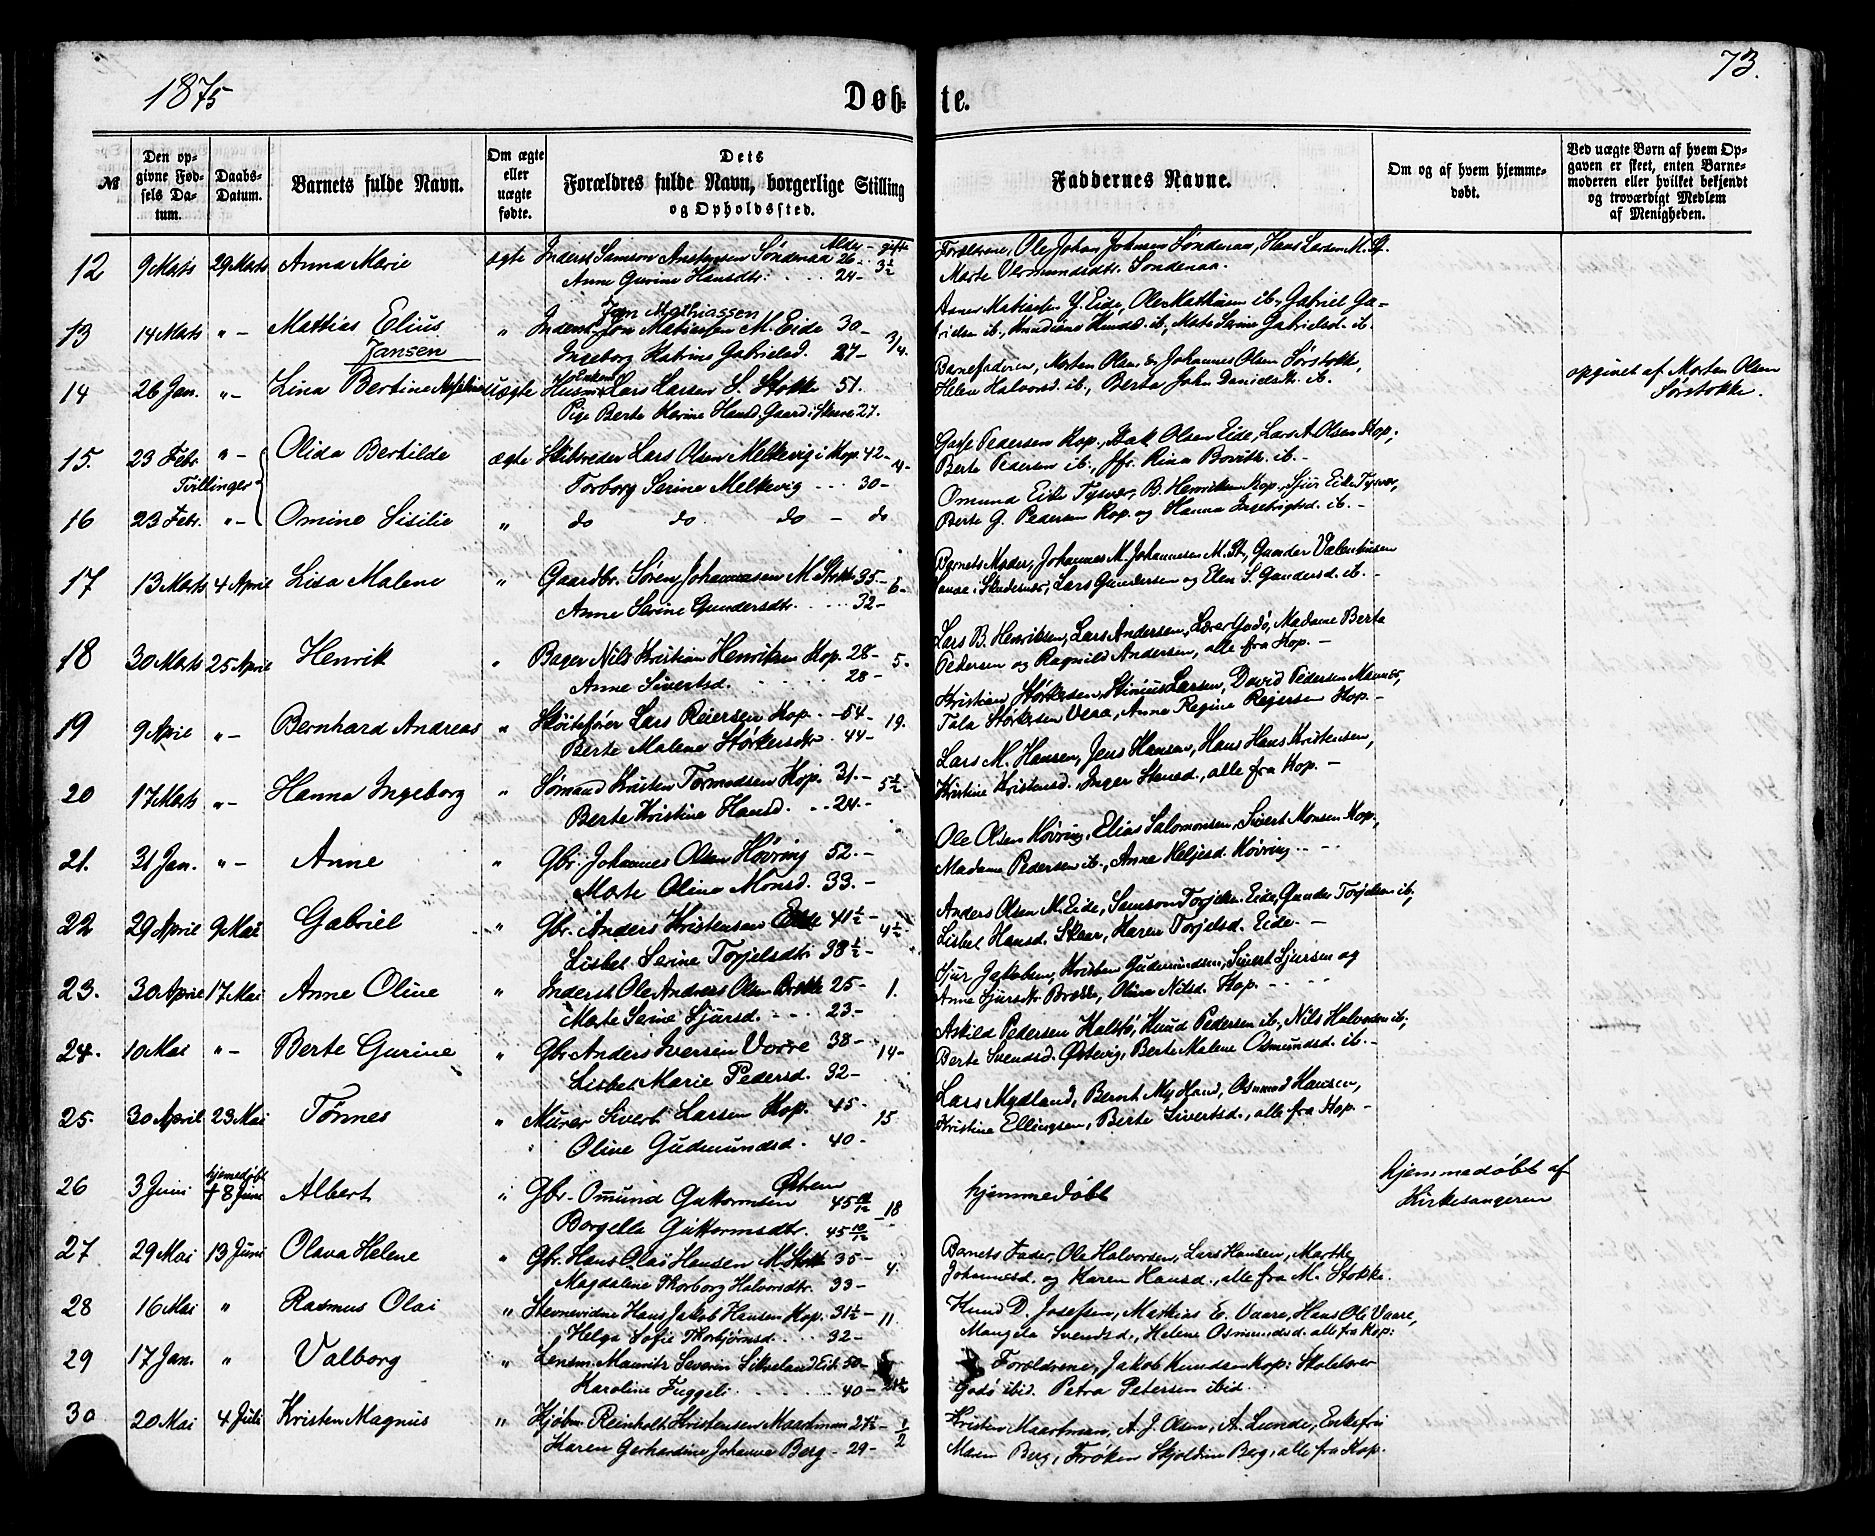 1875
Døb-
te.
73.
№
Den op-
givne Fød-
sels Da-
tum.
Daabs-
Datum.
Barnets fulde Navn.
Om ægte
eller
uægte
fødte.
Dets
Forældres fulde Navn, borgerlige Stilling
og Opholdssted.
Faddernes Navne.
Om og af hvem hjemme-
døbt.
Ved uægte Børn af hvem Op-
gaven er skeet, enten Barne-
moderen eller hvilket bekjendt
og troværdigt Medlem
af Menigheden.
Alder - gift
12 9 Marts 29 Marts Anna Marie ægte Inderst Samson Anstensen Søndenaa 26 - 3½
Anne Gurine Hansdtr. 24 -
Forældrene, Ole Johan Johnsen Søndenaa, Hans Larsen M. St.
Marte Vermundsdtr. Søndenaa.
Jan Mathiassen
13 14 Marts " - Mathias Elius " Inderst Jon Matiasen M. Eide 30 - 3/4.
Jansen
Ingeborg Katrine Gabrielsd. 27 -
Matiasen Y. Eide, Ole Mathiasen ib., Gabriel Ga-
ib., Knudine Knudsd. ib., Marte Serine Gabrielsd. ib.
14 26 Jan. " - Lina Bertine uægte Enkem. Husm. Lars Larsen S. Stokke 51.
Pige Berte Karine Hansd. Gaard i Skaare 27.
Barnefaderen, Morten Olsen & Johannes Olsen Sørstokke,
Helene Halvorsd. ib., Berta John Danielsdtr. ib.
opgivet af Morten Olsen
Sørstokke.
15. 23 Febr. " - Olida Bertilde ægte Skibsreder Lars Olsen Melkevig i Kop. 42 - 4 -
Tvillinger
Torborg Serine Melkevig 30 -
Pedersen Kop., Olsen Eide, Lars A. Olsen Kop.,
Berte Pedersen ib., Jfr. Rina ib. -
16 23 Febr. " - Omine Sisilie " do do do - do
Omund Eike Tysvær, B. Henriksen Kop., Sjur Eike Tysvær,
Berte G. Pedersen Kop. og Hanna ib. -
17 13 Marts 4 April Lisa Malene " Gaardbr. Søren Johannesen M. Stokke 35 - 6 -
Anne Serine Gundersdtr. 32 -
Barnets Moder, Johannes M. Johannesen M. St., Gunder Valentinsen
i Skudesnæs, Lars Gundersen og Elen S. Gundersd. ib. -
18 30 Marts 25 April Henrik " Bager Nils Kristian Henriksen Kop. 28 - 5.
Anne Sivertsd. 28 -
Lars B. Henriksen, Lars Andersen, Lærer Godø, Madame Berte
Pedersen og Ragnild Andersen, alle fra Kop. -
19 9 April " - Bernhard Andreas " Skøitefører Lars Reiersen Kop. - 54 - 19.
Berte Malene Størkersdtr. 44 -
Kristian Størkersen, Stinius Larsen, David Pedersen
Tala Størkersen Veaa, Anne Regine Rejersen Kop. -
20 17 Marts " - Hanna Ingeborg " Sømand Kristen Tormodsen Kop. 31. - 5½
Berte Kristine Hansd. 24. -
Lars M. Hansen, Jens Hansen, Hans Hans Kristensen,
Kristine Kristensd., Inger Stensd., alle fra Kop. -
21. 31 Jan. " - Anne " Gbr. Johannes Olsen Høvring 52. -
Marte Oline Monsd. 33. -
Ole Olsen Høvring, Elias Salomonsen, Sivert Monsen Kop.,
Madame Pedersen ib., Anne Heljesd. Høvring
22 29 April 9 Mai Gabriel " Gbr. Anders Kristensen Eide 41½ - 4½
Lisbet Serine Torjelsdtr. 38½ -
Anders Olsen M. Eide, Samson Torjelsen Eide, Gunder Torjelsen ib.,
Lisbet Hansd. Skaar, Karen Torjelsd. Eide -
23. 30 April 17 Mai Anne Oline " Inderst Ole Andreas Olsen Brekke 25 - 1.
Marte Serine Sjursd. 23 -
Sjur Jakobsen, Kristen Gudmundsen, Sivert Sjursen og
Anne Sjursdtr. Brekke, Oline Nilsd. Kop. -
24. 10 Mai " - Berte Gurine " Gbr. Anders Iversen Vorre 38 - 14 -
Lisbet Marie Pedersd. 32 -
Askild Pedersen Kalstø, Knud Pedersen ib., Nils Halvorsen ib.,
Berte Svendsd. Østevig, Berte Malene Osmundsd. ib. -
25. 30 April 23 Mai Tønnes " Murer Sivert Larsen Kop. 45 - 15
Oline Gudmundsd. 40 -
Lars Mydland, Bernt Mydland, Osmund Hansen,
Kristine Ellingsen, Berte Sivertsd., alle fra Kop. -
26 3 Juni hjemedøbt + 8 Juni Albert " Gbr. Omund Guttormsen Østrem 45 10/12 - 18
Borgella Guttormsdtr. 45 10/12
hjemmedøbt
hjemmedøbt af
Kirkesangeren
27 29 Mai 13 Juni Olava Helene " Gbr. Hans Olai Hansen M. Stokke 35 - 4.
Magdalene Thorborg Halvorsdtr. 33 -
Barnets Fader, Ole Halvorsen, Lars Hansen, Marthe
Johannesd. og Karen Hansd., alle fra M. Stokke.
28 16 Mai " Rasmus Olai " Hans Jakob Hansen Kop. 31½ - 11.
Helga Sofie Thorbjørnsd. 32 -
Knud D. Josefsen, Mathias E. Vaare, Hans Ole Vaare,
Mangela Svendsd., Helene Osmundsd. alle fra Kop:
29 17 Jan. " Valborg " Lensm. Mauritz Severin Sikveland Eide 50 -
Karoline Fuggeli 40 -
Forældrene, Jakob Knudsen Kop: Skolelærer
Godø ibid. Petra Petersen ibid.
30 20 Mai 4 Juli Kristen Magnus " Kjøbm. Reinholt Kristensen Maartman 24½ - ½
Karen Gerhardine Johanne Berg - 29 -
Kristen Maartman, A. J. Olsen, A. Lunde, Enkefru
Maren Berg, Frøken Skjoldine Berg, alle fra Kop.